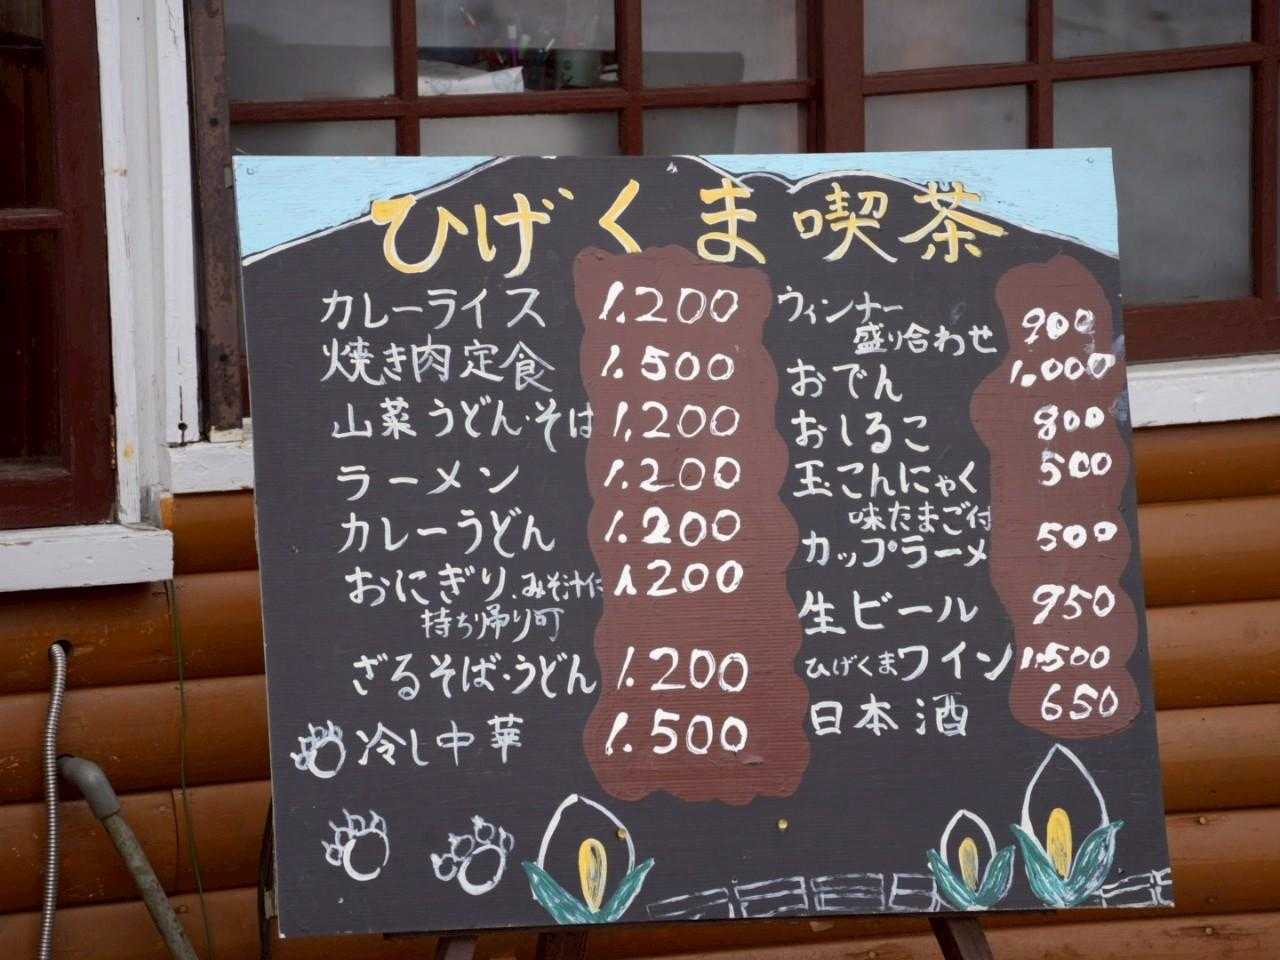 ひげくま喫茶
カレーライス 1.200
焼き肉定食 1.500
山菜うどん・そば 1,200
ラーメン 1.200
カレーうどん 1.200
おにぎり.みそ汁付 1.200
持ち帰り可
ざるそば・うどん 1.200
冷し中華 1.500
ウィンナー
盛り合わせ 900
おでん 1,000
おしるこ 800
玉こんにゃく 500
味たまご付
カップラーメ 500
生ビール 950
ひげくまワイン 1.500
日本酒 650